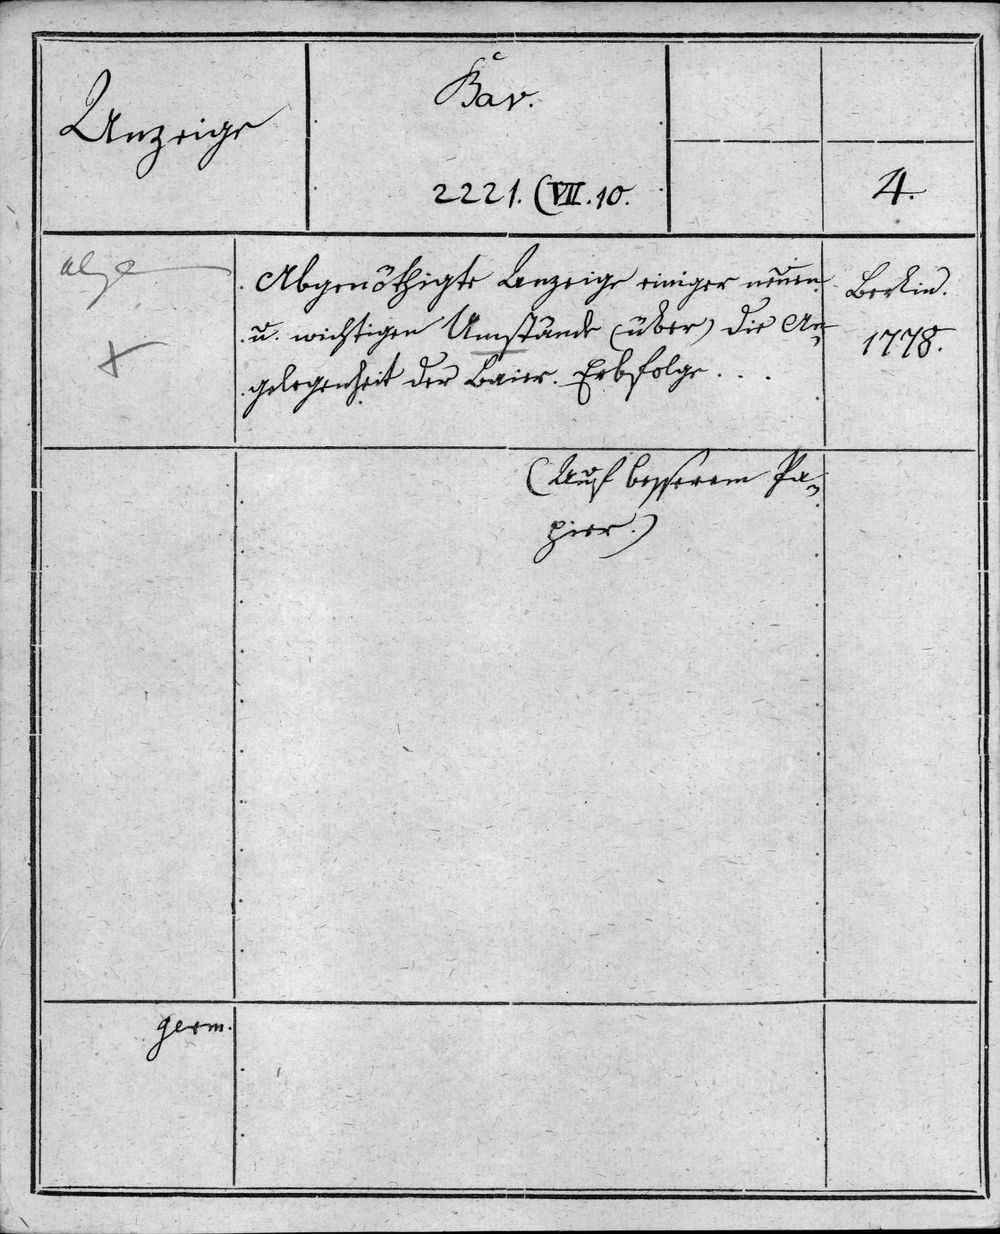 Anzeige
Bav.
2221. (VII. 10.
4.
Abgenöthigte Anzeige einiger neuen
u. wichtigen Umstände (über) die An-
gelegenheit der Baier. Erbfolge . . .
Berlin.
1778.
(Auf besserem Pa-
pier.)
germ.